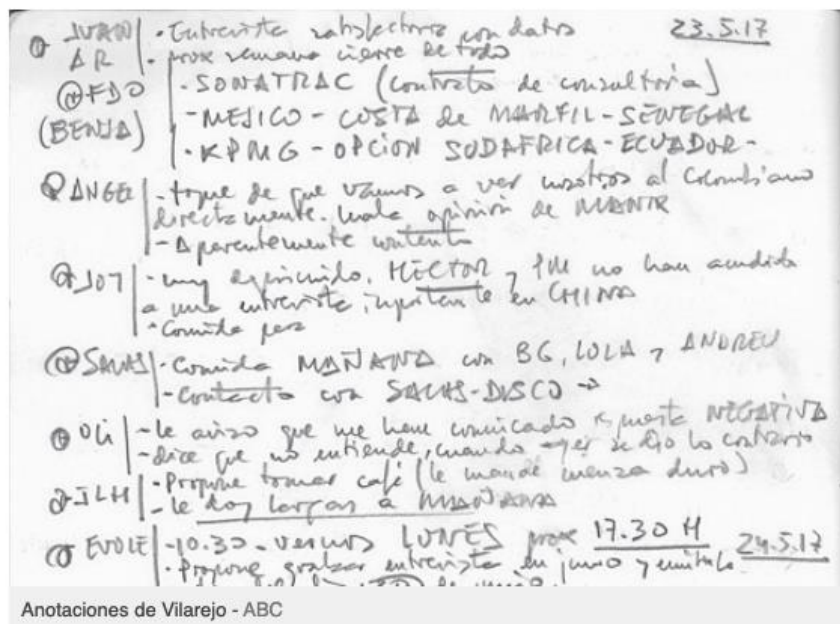 23.5.17
JUAN AR - Entrevista satisfactoria con datos
- prox semana cierre de todo
FDO (BENJA) - SONATRAC (contrato de consultoria)
- MEJICO - COSTA de MARFIL - SENEGAL
- KPMG - OPCION SUDAFRICA - ECUADOR -
ANGEL - toque de que vamos a ver nosotros al Colombiano
directamente. mala opinión de
- Aparentemente contento
JOT - muy agradecido. HECTOR y no han acudido
a una entrevista importante en CHINA
- Comida
- Comida MAÑANA con BG, LOLA y ANDREU
- Contacto con -DISCO →
OLi - le aviso que me han comunicado respuesta NEGATIVA
- dice que no entiende, cuando ayer se dio lo contrario
JLH - Propone tomar café (le mandé duro)
- le doy largas a MAÑANA
EVOLE - 10.30 - vernos LUNES prox 17.30 H
24.5.17
- Propone grabar entrevista en junio y emitirla
Anotaciones de Vilarejo - ABC